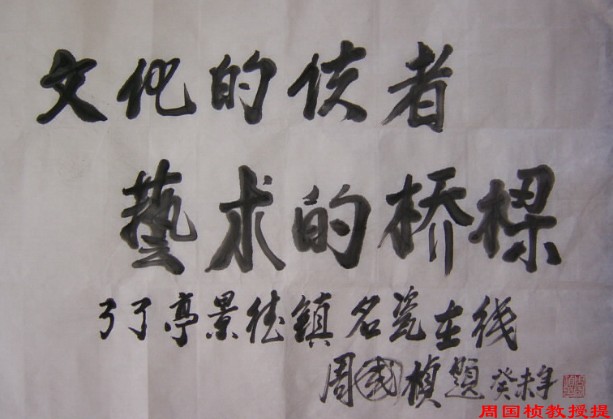 文化的使者
藝术的桥樑
了了亭景德镇名瓷在线
周国桢题癸未年
周国桢教授提